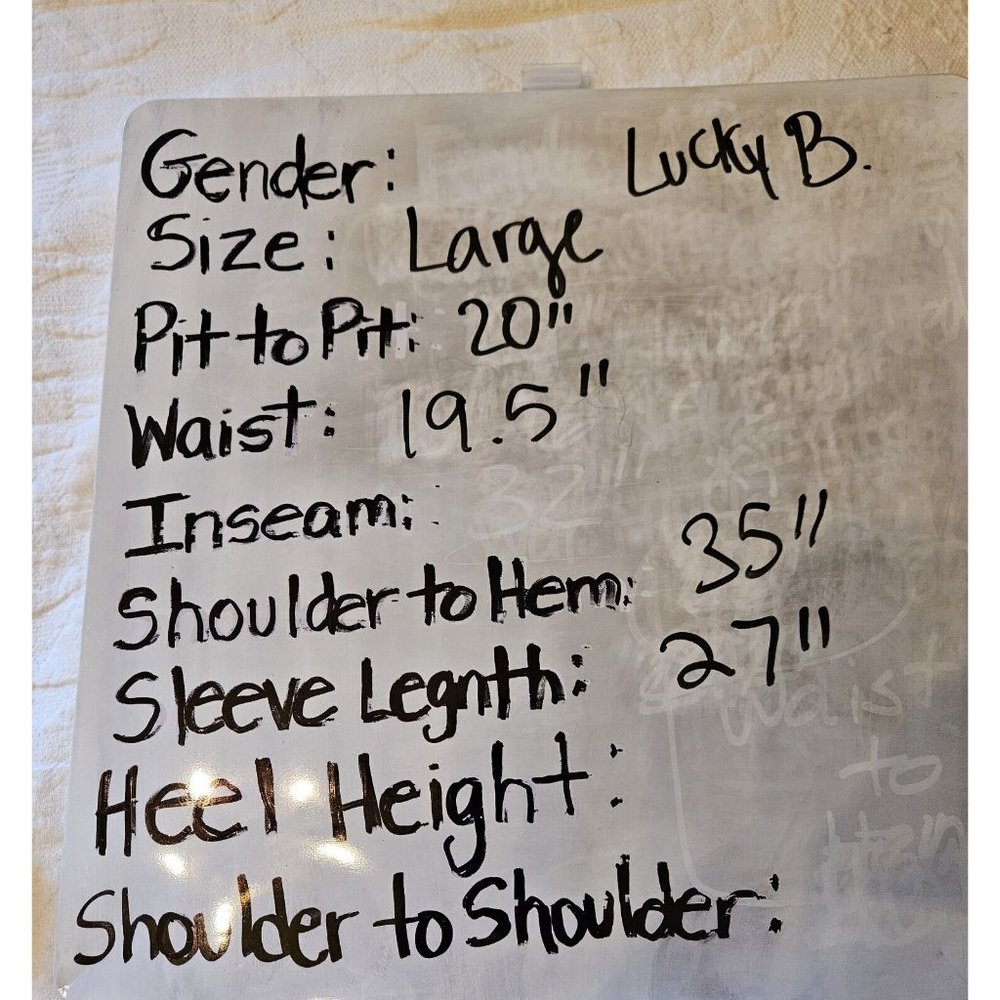 Gender: Lucky B.
Size: Large
Pit to Pit: 20"
Waist: 19.5"
Inseam:
32"
Shoulder to Hem: 35"
Sleeve Legnth: 27"
Waist
to
Hem
Heel Height:
Shoulder to Shoulder: